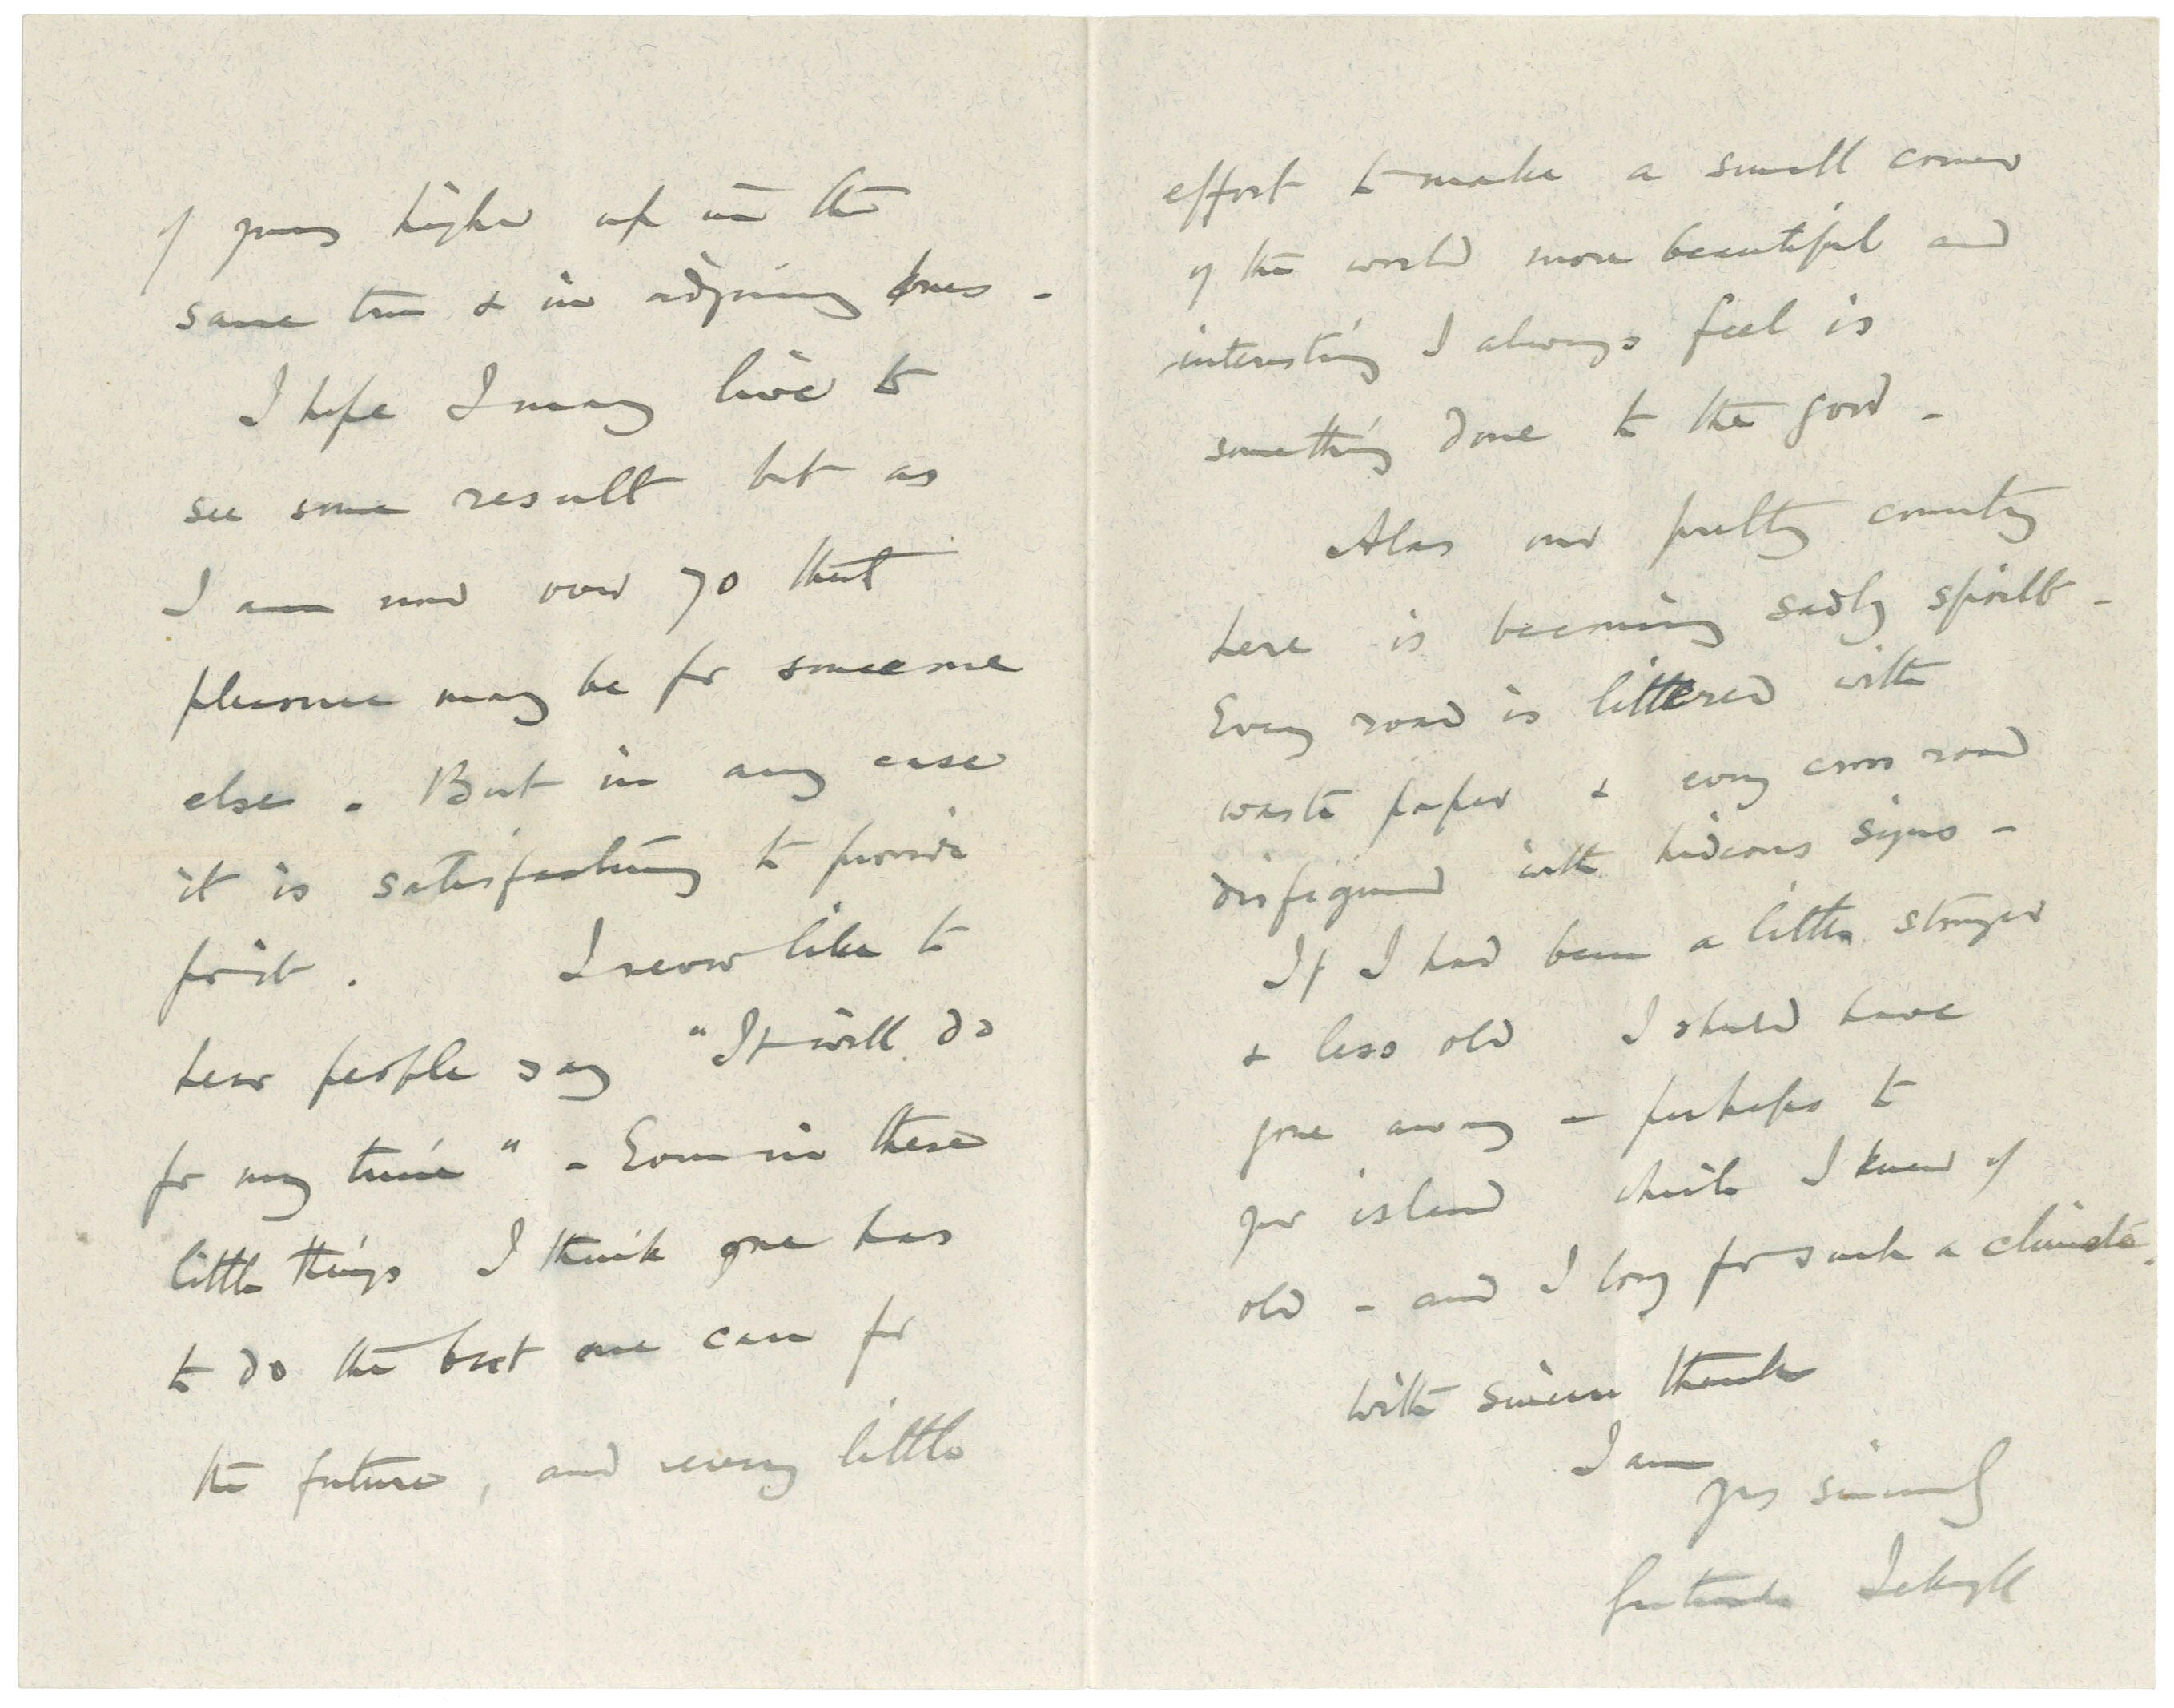 of young higher up in the
same tree & in adjoining ones -
I hope I may live to
see some result but as
I am now over 70 that
pleasure may be for someone
else. But in any case
it is satisfactory to provide
for it. I never like to
hear people say "It will do
for my time" - Even in these
little things I think one has
to do the best one can for
the future, and every little
effort to make a small corner
of the world more beautiful and
interesting I always feel is
something done to the good -
Alas our pretty country
here is becoming sadly spoilt -
Every road is littered with
waste paper & every cross road
disfigured with hideous signs -
If I had been a little stronger
& less old I should have
gone away - perhaps to
your island which I knew of
old - and I long for such a climate.
With sincere thanks
I am
yrs sincerely
Gertrude Jekyll